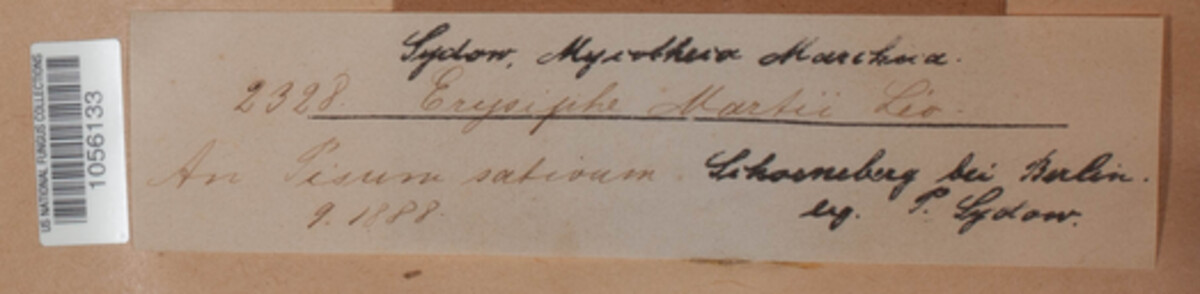 US NATIONAL FUNGUS COLLECTIONS
1056133
Sydow, Mycotheca Marchica.
2328. Erysiphe Martii Lév.
An Pisum sativum. Schoeneberg bei Berlin.
9. 1888. leg. P. Sydow.